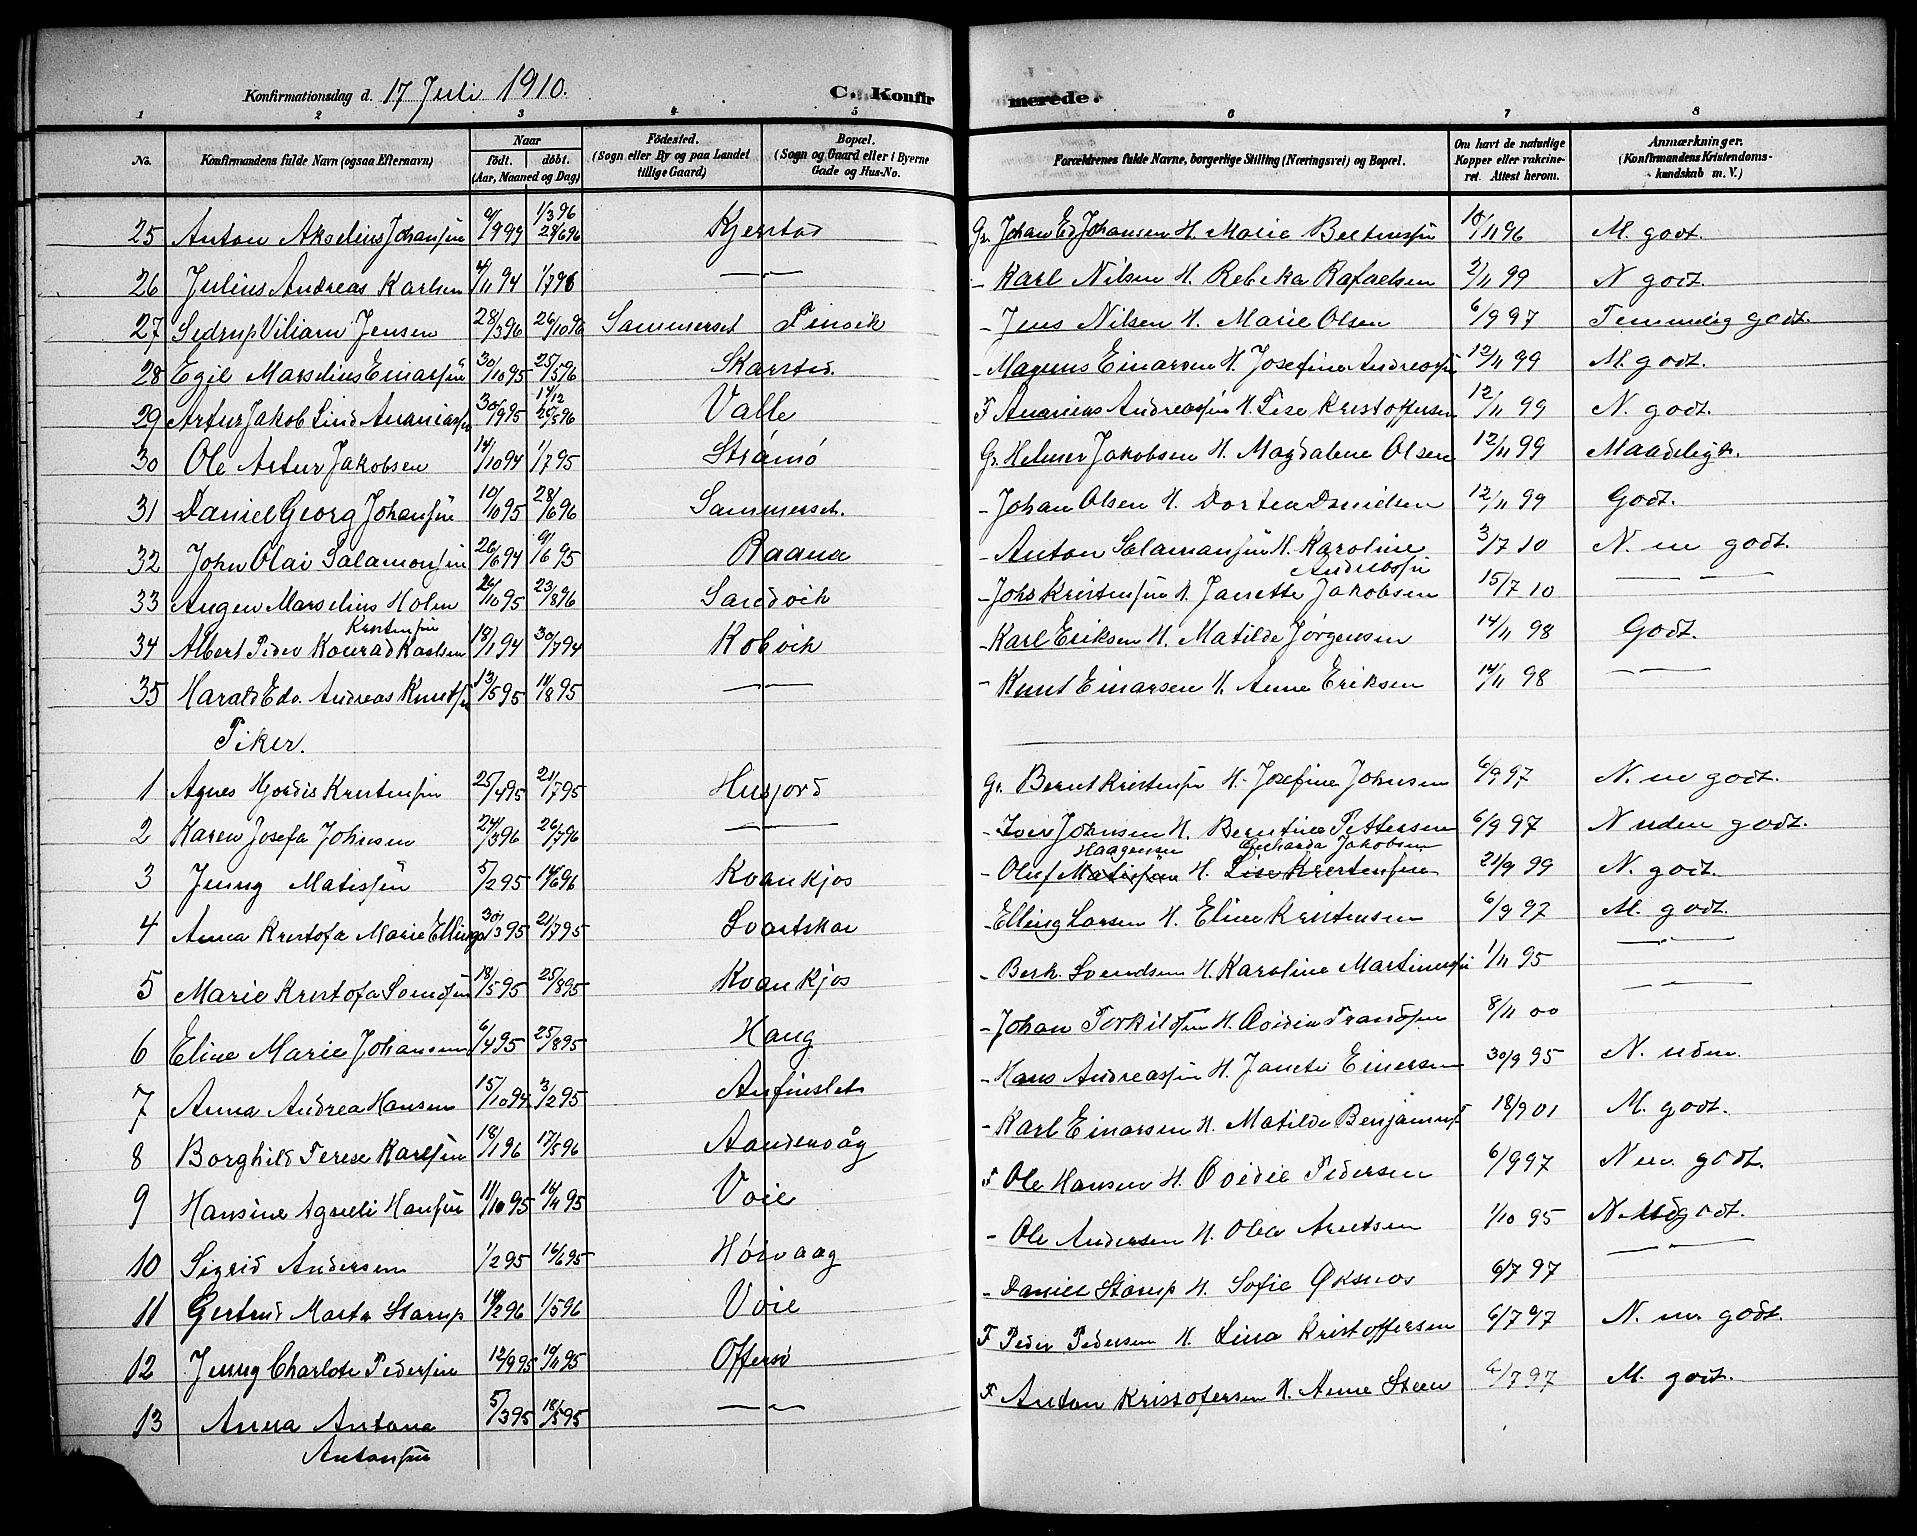 Konfirmationsdag d. 17 Juli 1910. C. Konfirmerede.
1 2 3 4 5 6 7 8
No. Konfirmandens fulde Navn (ogsaa Efternavn) Naar født. døbt. (Aar, Maaned og Dag) Fødested. (Sogn eller By og paa Landet tillige Gaard) Bopæl. (Sogn og Gaard eller i Byerne Gade og Hus-No. Forældrenes fulde Navne, borgerlige Stilling (Næringsvei) og Bopæl. Om havt de naturlige Kopper eller vakcineret. Attest herom. Anmærkninger. (Konfirmandens Kristendomskundskab m. V.)
25 Anton Akselius Johansen 1/3 96 28/6 96 Kjerstad Gr. Johan Ed Johansen H. Marie 11 96 M. godt.
26 Julius Andreas Karlsen 4/11 94 1/7 96 — — - Karl Nilsen H. Rebeka Rafaelsen 2/11 99 N godt.
27 Sedrup Viliam Jensen 28/3 96 26/10 96 Sammerset Pinvik - Jens Nilsen H. Marie Olsen 6/9 97 Temmelig godt.
28 Egil Marselius Einarsen 30/10 95 25/5 96 Skarstad. - Magnus Einarsen H. Josefine Andreassen 12/11 99 M. godt.
29 Artur Jakob Lind Ananiassen 30/9 95 25/5 96 Valle F Ananias Andreassen H. Lise Kristoffersen 12/11 99 N. godt.
30 Ole Artur Jakobsen 14/10 94 1/7 95 Strømø Gr. Helmer Jakobsen H. Magdalene Olsen 12/11 99 Maadeligt.
31 Daniel Georg Johansen 10/10 95 28/6 96 Sammerset. - Johan Olsen H. Dortea Danielsen 12/11 99 Godt.
32 John Olai Salamonsen 26/6 94 9/6 95 Raana - Anton Salamonsen H. Karoline Andreassen 3/7 10 N. m godt.
33 Angen Marselius Holm Kristensen 10 95 23/8 96 Sandvik - Johs Kristensen H. Janette Jakobsen 15/7 10 — —
34 Albert Peder Konrad Karlsen 18/1 94 30/7 94 Kobvik - Karl Eriksen H. Matilde Jørgensen 14/11 98 Godt.
35 Harald Edv. Andreas Knutsen 13/5 95 11/8 95 — — - Knut Einarsen H. Anne Eriksen 14/11 98 — —
Piker.
1 Agnes Hjørdis Kristensen 25/4 95 21/7 95 Husjord Gr. Bernt Kristensen H. Josefine Johnsen 6/9 97 N. m godt.
2 Karen Josefa Johnsen 24/3 96 26/7 96 — — - Iver Johnsen H. Berntine Pettersen 6/9 97 N uden godt.
3 Jenny Matissen 5/2 95 14/6 96 Kvankjos - Oluf Matissen Haagensen H. Lise Kristensen Gerharda Jakobsen 21/9 99 N. godt.
4 Anna Kristofa Marie Ellings 30/3 95 21/7 95 Svartskar Elling Larsen H. Eline Kristensen 6/9 97 M. godt.
5 Marie Kristofa Svendsen 18/5 95 25/8 95 Kvankjos - Berh. Svendsen H. Karoline Martinussen 1/11 95 — —
6 Eline Marie Johansen 6/4 95 25/8 95 Haug - Johan Torkildsen H. Ovidia Trandsen 8/11 00 — —
7 Anna Andrea Hansen 15/10 94 3/2 95 Anfinslet - Hans Andreassen H. Janete Einersen 30/9 95 N. uden.
8 Borghild Terese Karlsen 18/1 96 17/5 96 Aandervåg - Karl Einarsen H. Matilde Benjamins 18/9 01 M. godt.
9 Hansine Agneli Hansen 11/10 95 14/11 95 Voie F Ole Hansen H. Ovidie Pedersen 6/9 97 N m. godt.
10 Sigrid Andersen 1/2 95 16/6 95 Høivaag - Ole Andersen H. Olea Arntsen 1/10 95 N. godt.
11 Gertrud Marta Starup 14/2 96 1/5 96 Voie - Daniel Starup H. Sofie Øksnes 6/7 97 — —
12 Jenny Charlote Pedersen 12/9 95 10/11 95 Offersø F Peder Pedersen H. Lina Kristoffersen 6/7 97 N. m. godt.
13 Anna Antona Antonsen 5/3 95 18/5 95 — — F Anton Kristofersen H. Anne Steen 6/7 97 M. godt.